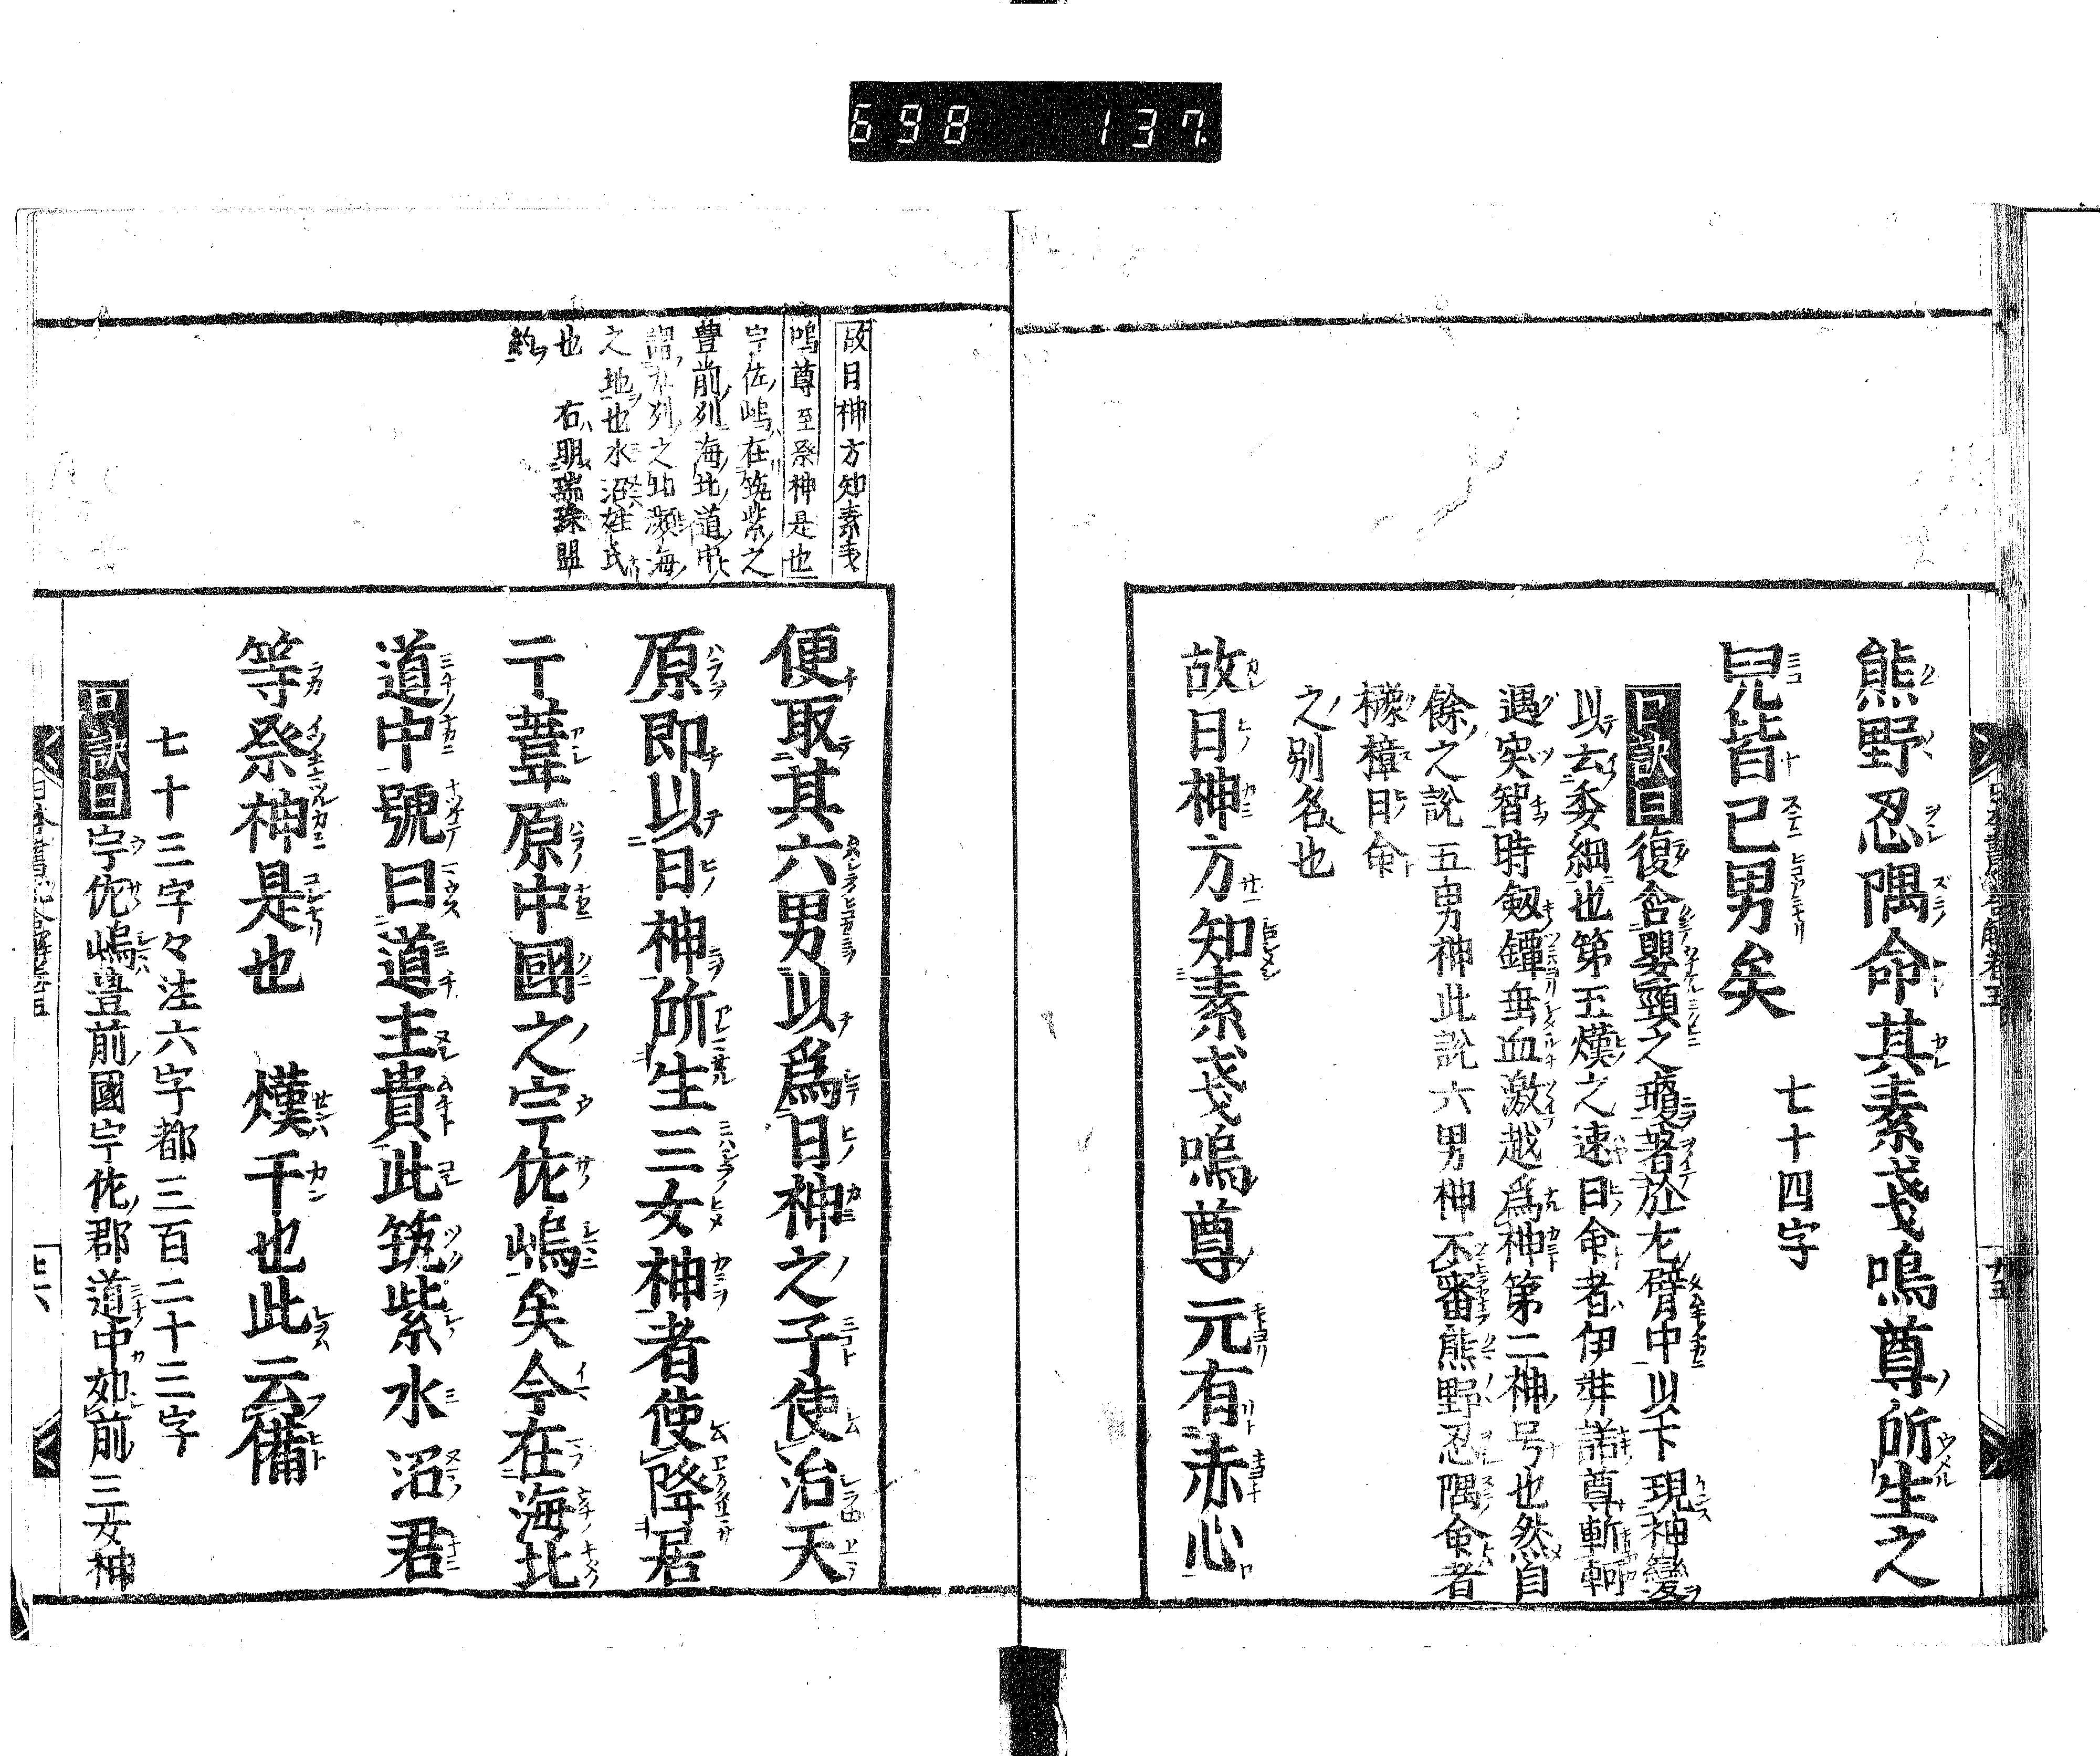 698 137
熊野忍隅命其素戔嗚尊所生之
兒皆已男矣 七十四字
口訣曰復含嬰頸之瓊著於左臂中以下現神變
以云委細也第五熯之速日命者伊弉諾尊斬軻
遇突智時劔鐔垂血激越為神第二神号也然自
餘之說五男神此說六男神不審熊野忍隅命者
櫲樟日命
之別名也
故日神方知素戔嗚尊元有赤心
故日神方知素戔
嗚尊至祭神是也
宇佐嶋在筑紫之
豊前列海北道中
謂九列之北瀕海
之地也水沼姓氏
也 右明瑞珠盟
約
便取其六男以爲日神之子使治天
原即以日神所生三女神者使降居
于葦原中國之宇佐嶋矣今在海北
道中號曰道主貴此筑紫水沼君
等祭神是也 熯干也此云備
七十三字々注六字都三百二十三字
口訣曰宇佐嶋豊前國宇佐郡道中如前三女神